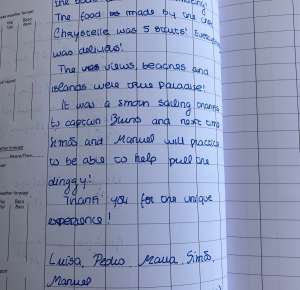 The food is made by the
Chrystelle was 5 stars! Everything
was delicious!
The views, beaches and
islands were true paradise!
It was a smooth sailing thanks
to captain Bruno and next time
Simão and Manuel will practice
to be able to help pull the
dinggy!
Thank you for the unique
experience!
Luísa, Pedro, Maria, Simão,
Manuel